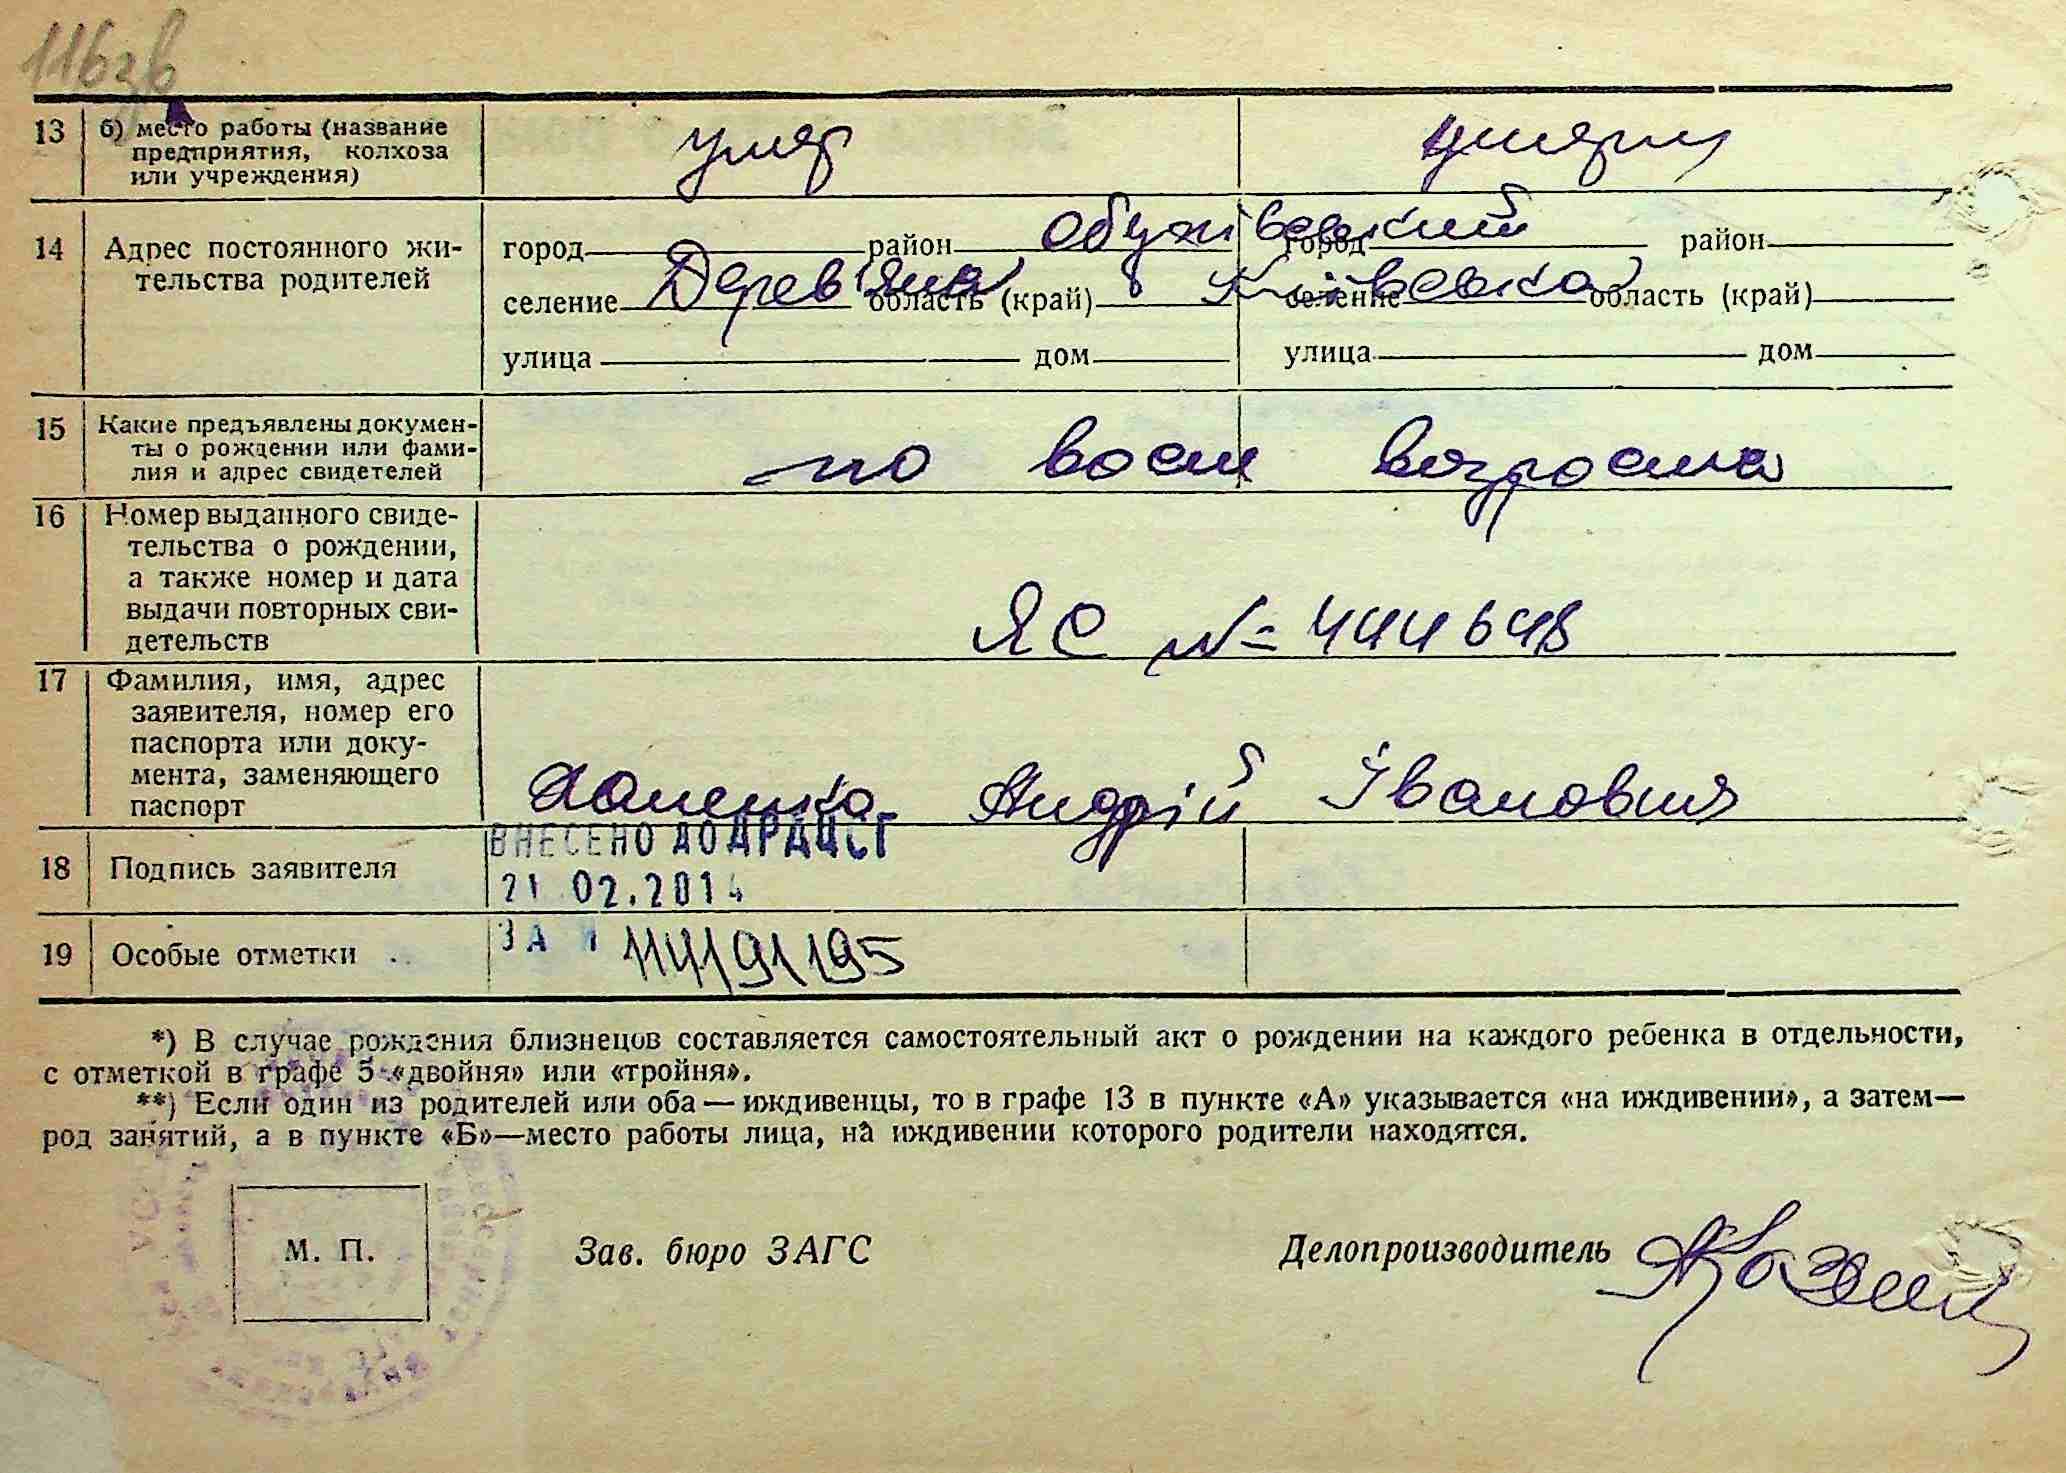 116зв
13 б) место работы (название
предприятия, колхоза
или учреждения)
умер умерли
14 Адрес постоянного жи-
тельства родителей
город район Обухівський город район
селение Дерев'яна область (край) Київська селение область (край)
улица дом улица дом
15 Какие предъявлены докумен-
ты о рождении или фами-
лия и адрес свидетелей
по возраста
16 Номер выданного свиде-
тельства о рождении,
а также номер и дата
выдачи повторных сви-
детельств
ЯС № 444648
17 Фамилия, имя, адрес
заявителя, номер его
паспорта или доку-
мента, заменяющего
паспорт
Андрій Іванович
ВНЕСЕНО ДО ДРАЦСГ
18 Подпись заявителя
21 02.2014
19 Особые отметки
ЗА 114191195
*) В случае рождения близнецов составляется самостоятельный акт о рождении на каждого ребенка в отдельности,
с отметкой в графе 5 «двойня» или «тройня».
**) Если один из родителей или оба — иждивенцы, то в графе 13 в пункте «А» указывается «на иждивении», а затем—
род занятий, а в пункте «Б»—место работы лица, на иждивении которого родители находятся.
М. П.
Зав. бюро ЗАГС
Делопроизводитель